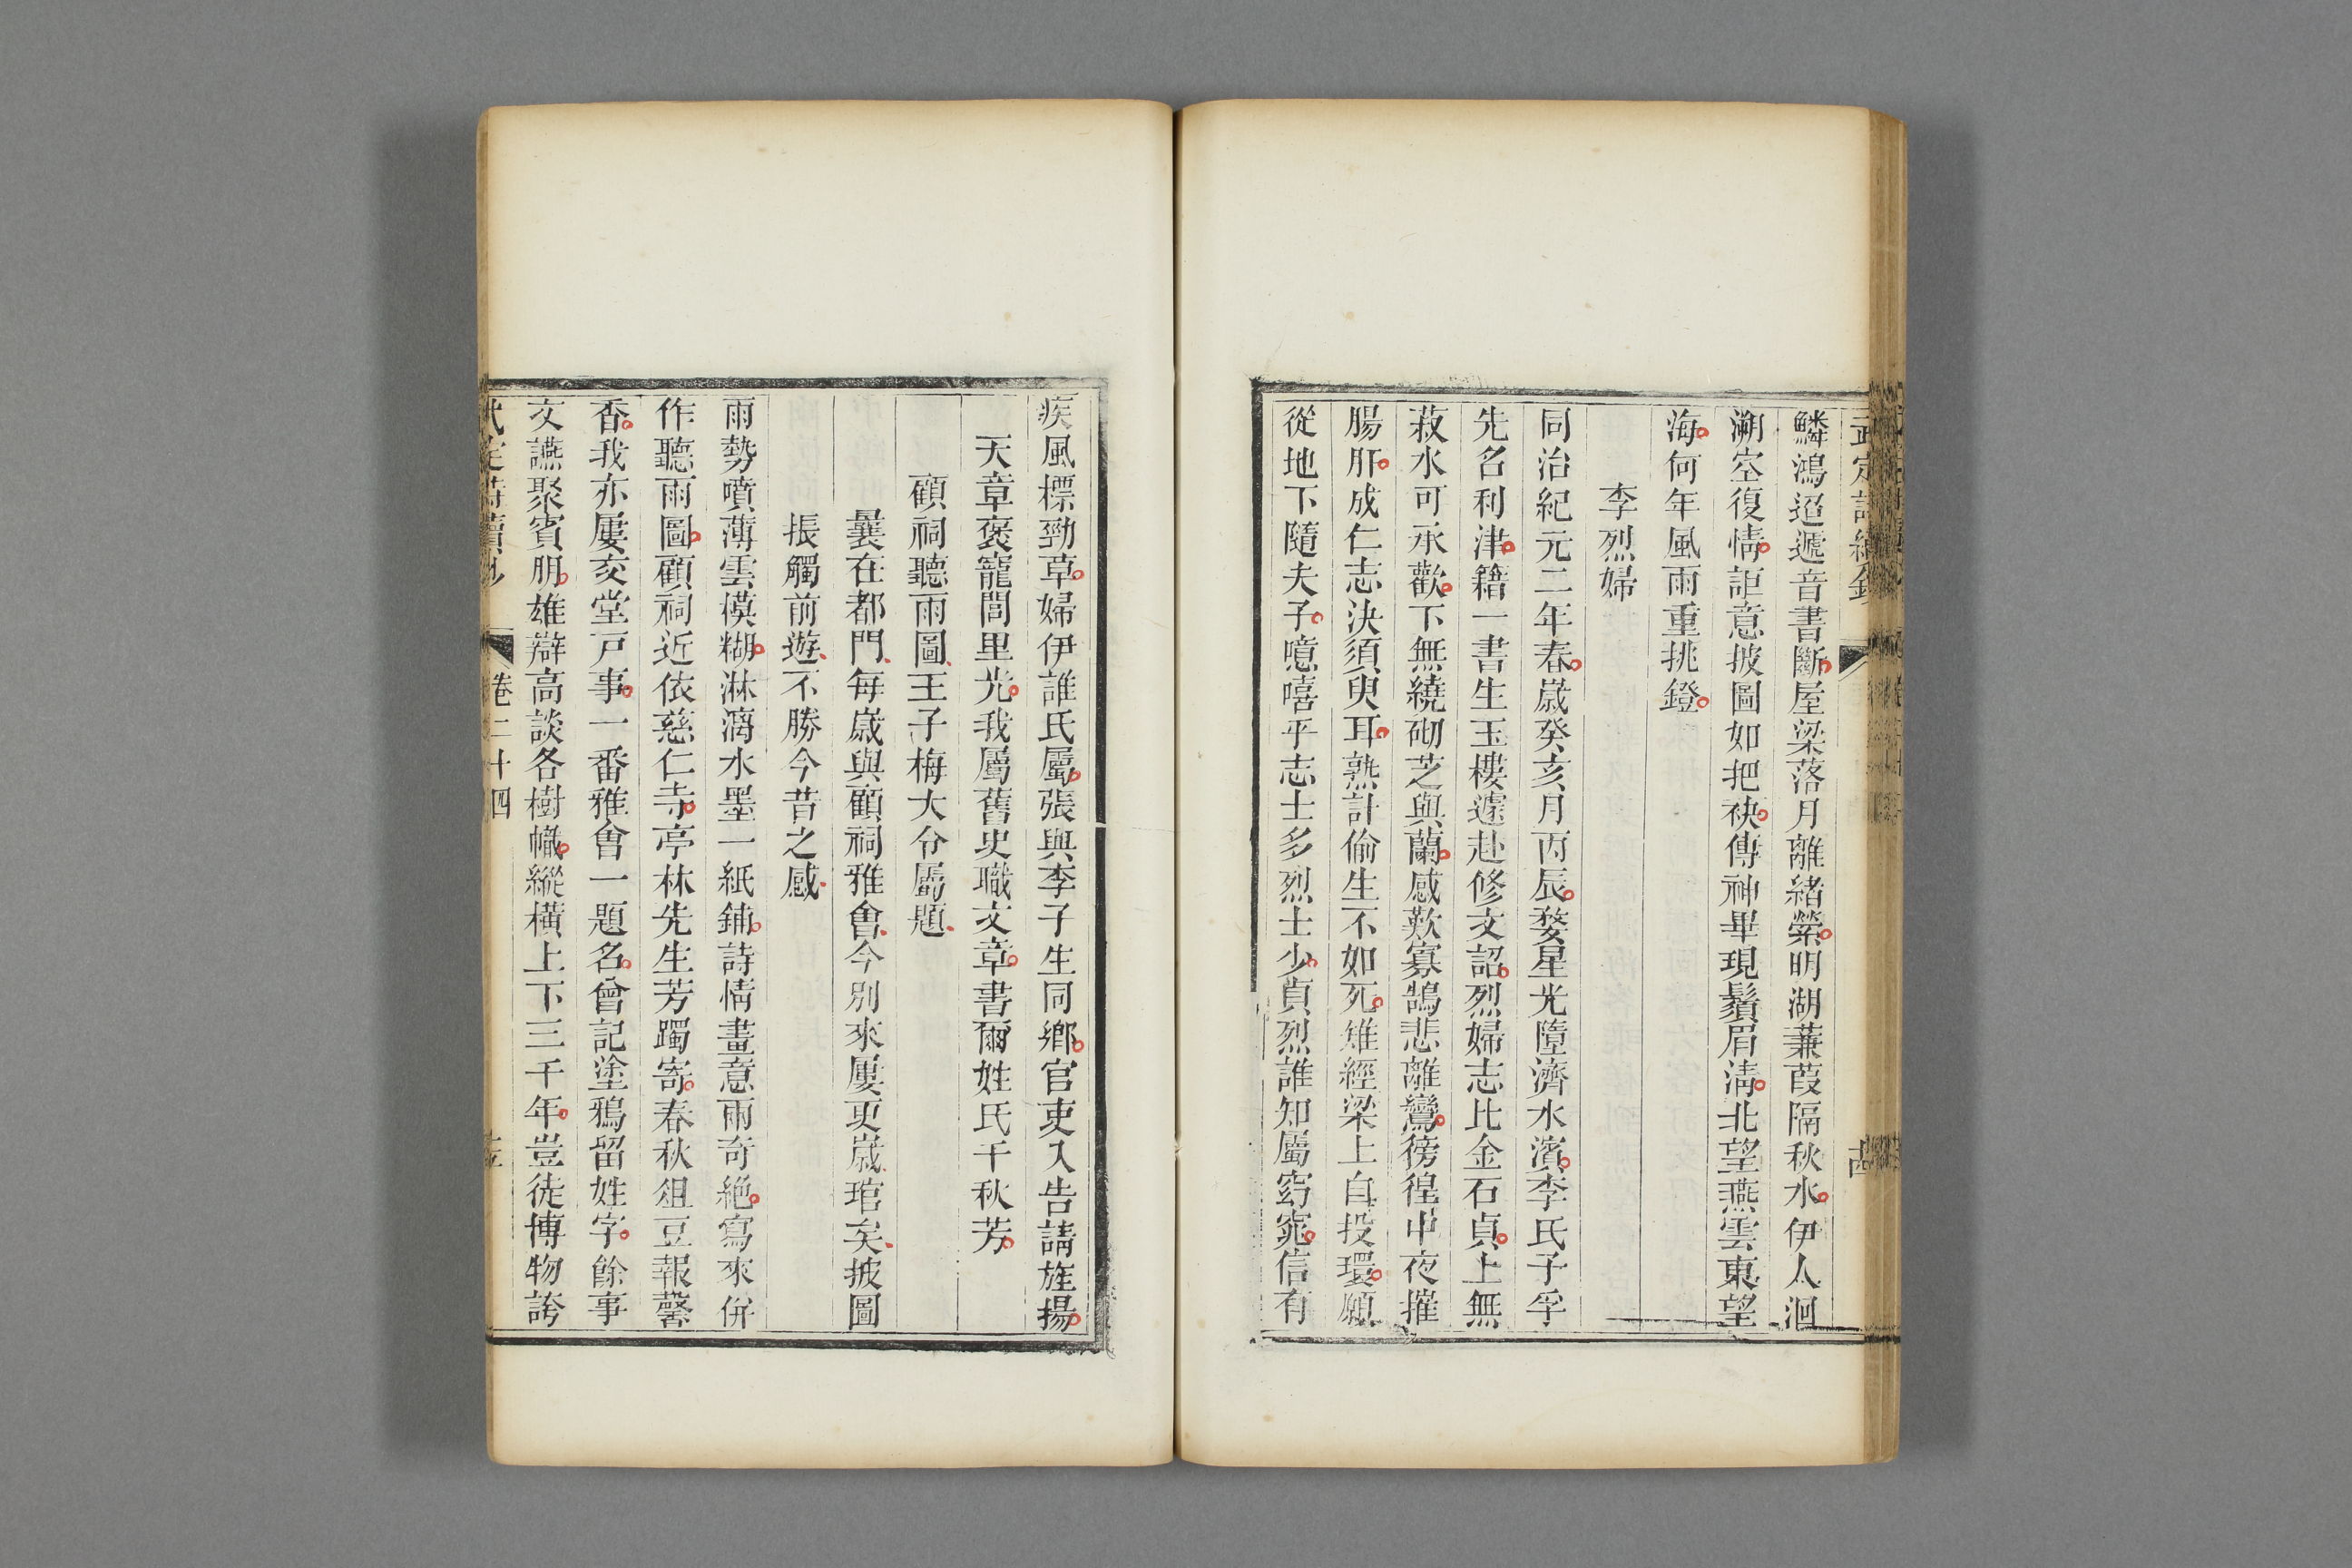 武定詩續鈔
鱗鴻迢遞音書斷屋梁落月離緒縈明湖蒹葭隔秋水伊人洄
溯空復情詎意披圖如把袂傳神畢現鬚眉清北望燕雲東望
海何年風雨重挑鐙
李烈婦
同治紀元二年春歲癸亥月丙辰婺星光墮濟水濱李氏子孚
先名利津籍一書生玉樓遽赴修文詔烈婦志比金石貞上無
菽水可承歡下無繞砌芝與蘭感歎寡鵠悲離鸞徬徨中夜摧
腸肝成仁志決須臾耳熟計偷生不如死雉經梁上自投環願
從地下隨夫子噫嘻乎志士多烈士少貞烈誰知屬窈窕信有
疾風標勁草婦伊誰氏屬張與李子生同鄉官吏入告請旌揚
天章褒寵閭里光我屬舊史職文章書爾姓氏千秋芳
顧祠聽雨圖王子梅大令屬題
曩在都門每歲與顧祠雅會今別來屢更歲琯矣披圖
振觸前遊不勝今昔之感
雨勢噴薄雲模糊淋漓水墨一紙鋪詩情畫意兩奇絕寫來併
作聽雨圖顧祠近依慈仁寺亭林先生芳躅寄春秋俎豆報馨
香我亦屢交堂戸事一番雅會一題名曾記塗鴉留姓字餘事
文讌聚賓朋雄辯高談各樹幟縱橫上下三千年豈徒博物誇
武定詩續鈔 卷二十四